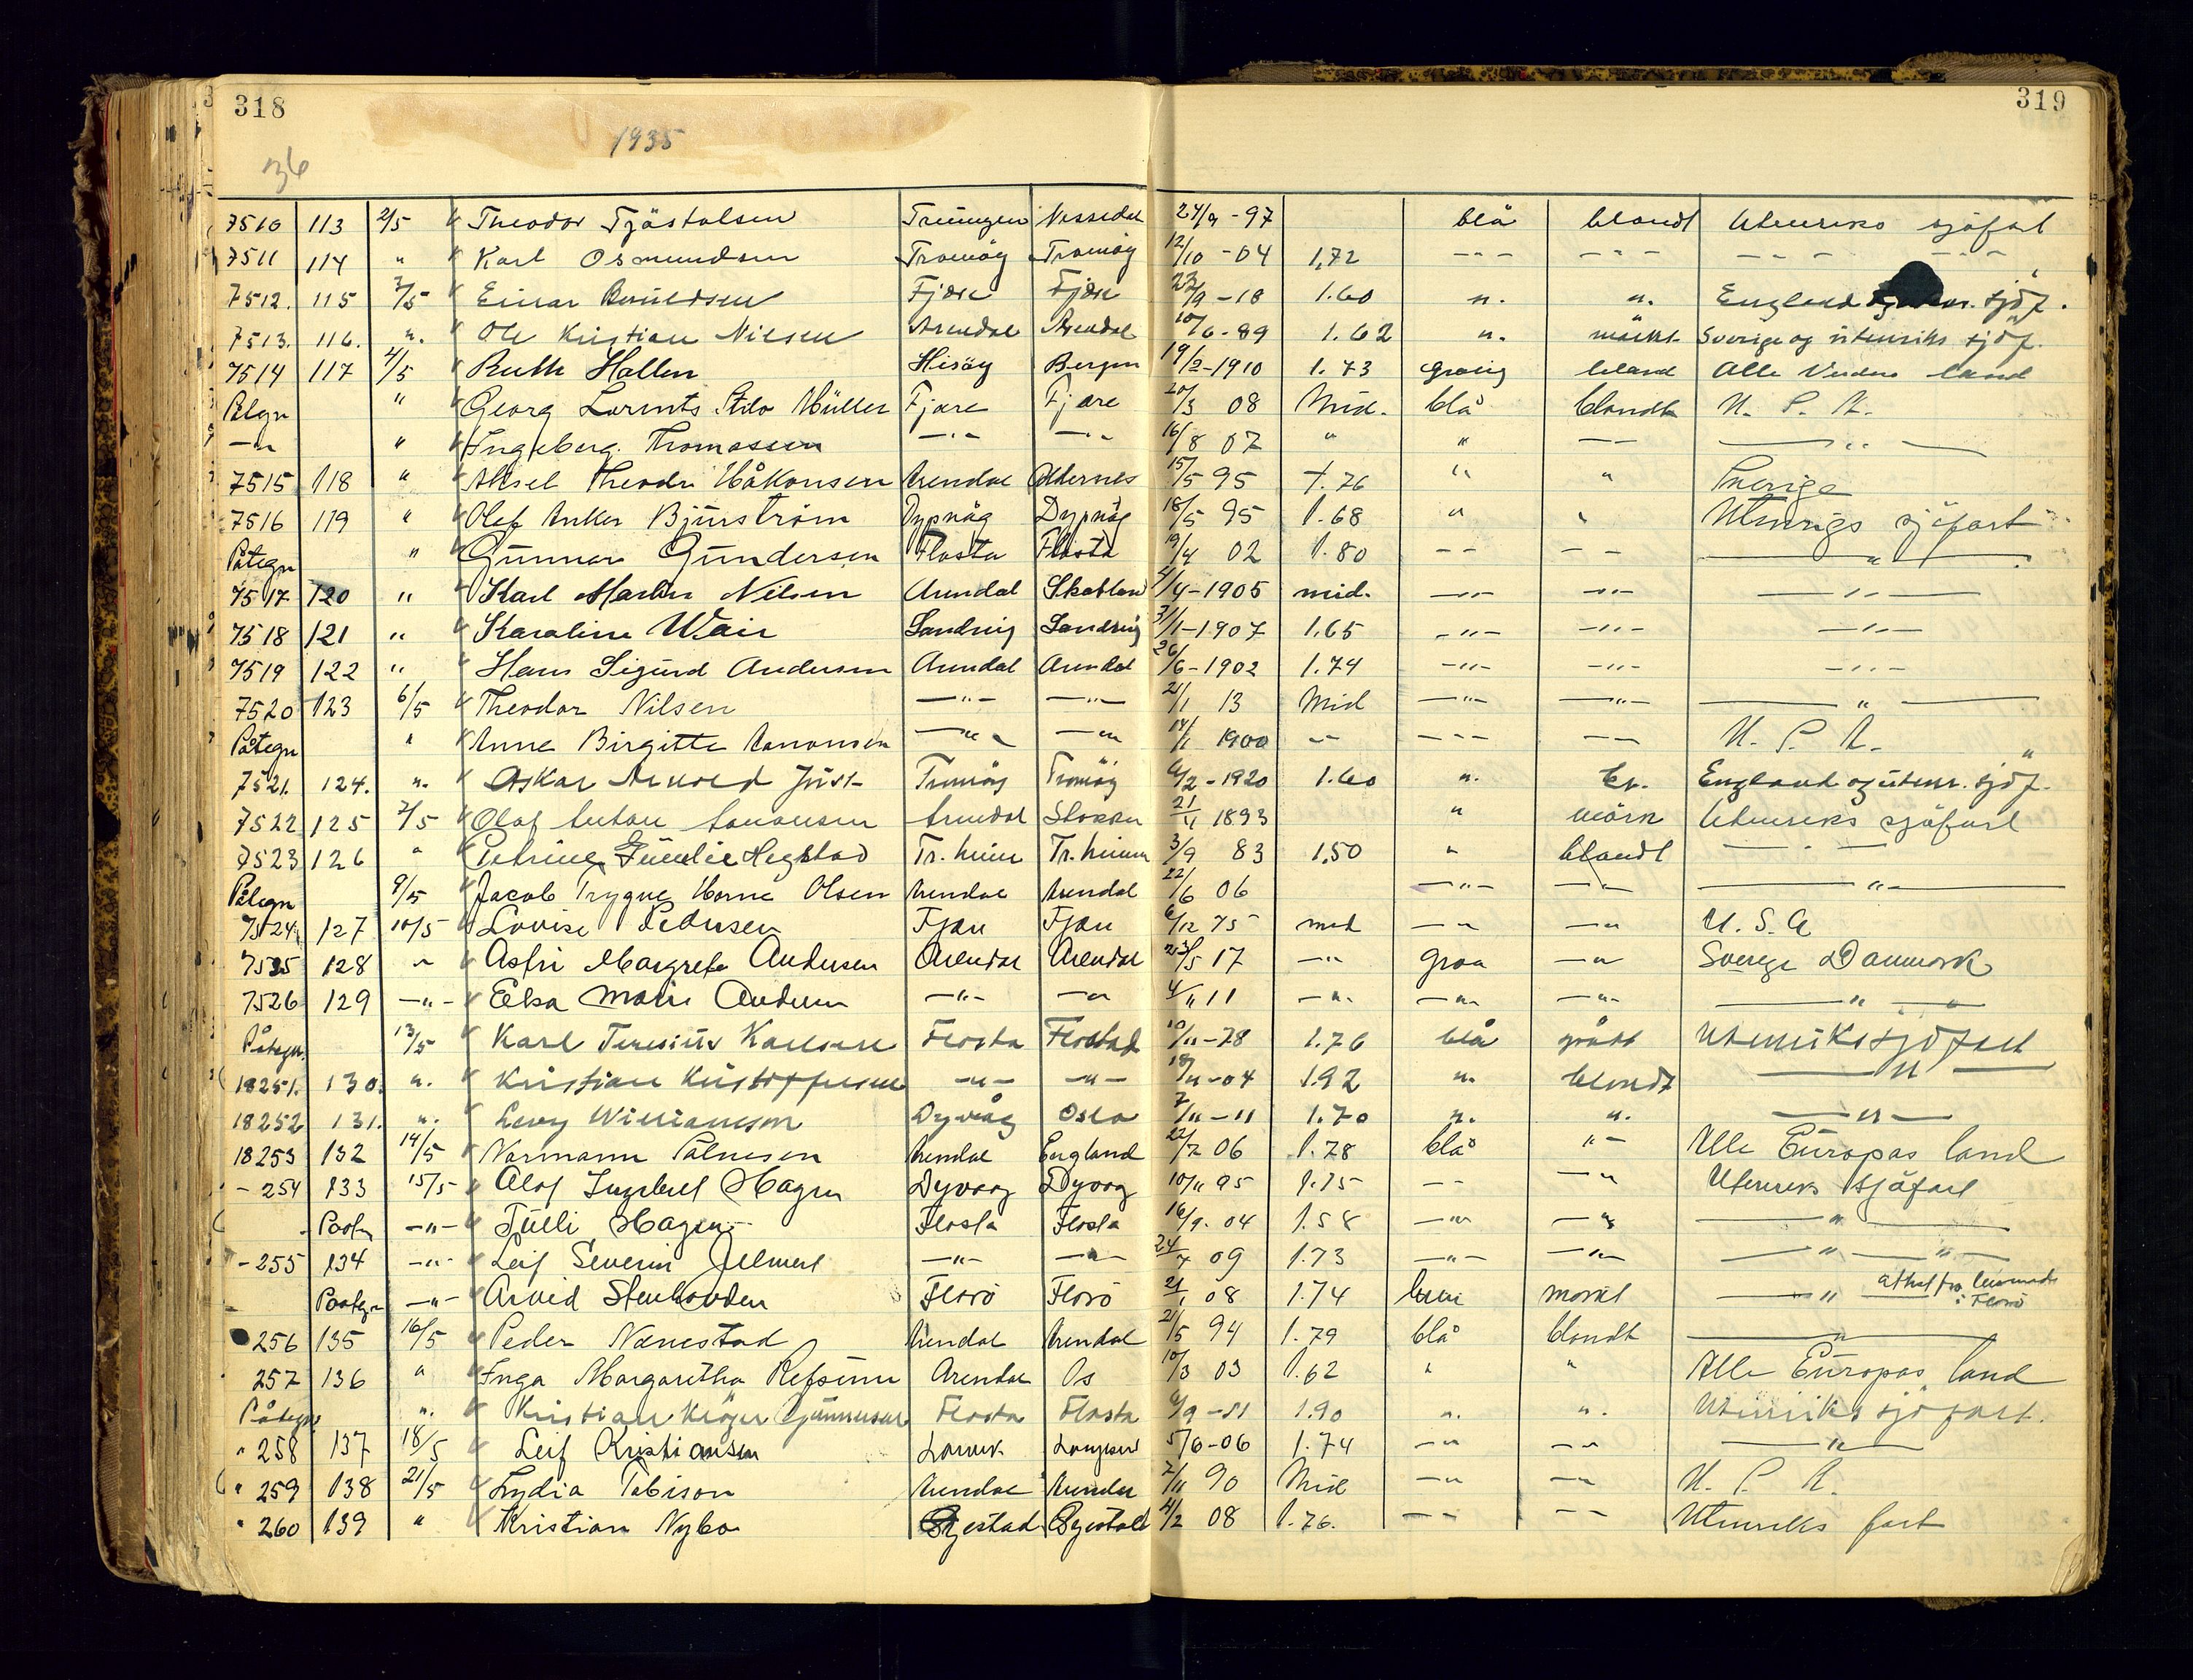 318 319
1935
36
7510 113 2/5 " Theodor Tjøstolsen Treungen Nissedal 24/9 -97 blå blondt Utenriks sjøfart
7511 114 " " Karl Osmundsen Tromöy Tromöy 12/10 -04 1,72 -"- -"- -"- -"-
7512. 115 3/5 " Einar Fjære Fjære 23/9 -18 1.60 ". ". England sjöf.
7513. 116. ". " Ole Kristian Nilsen Arendal Arendal 10/6 -89 1.62 ". mörkt Sverige og utenriks sjöf.
7514 117 4/5 " Ruth Hallen Hisöy Bergen 19/2 -1910 1.73 blond Alle Verdens land
Påtegn " " Georg Lorents Müller Fjære Fjære 20/3 08 Mid. blå blondt U. S. A.
-"- " " Ingeborg Thomassen -"- -"- 16/8 07 " " -"- -"-
7515 118 " " Aksel Theodor Håkonsen Arendal 15/5 95 1.76 " " Sverige
7516 119 " " Olef Anker Bjurström Dypvåg Dypvåg 18/5 95 1.68 " " Utenrigs sjöfart
Påtegn " " Gunnar Gundersen Flosta Flosta 19/4 02 1.80 -"- -"- -"-
7517 120 " " Karl Martin Nilsen Arendal 4/4 -1905 mid. -"- -"- -"-
7518 121 " " Karoline Wair Landvig Landvig 31/1 -1907 1.65 -"- -"- -"-
7519 122 " " Hans Sigurd Andersen Arendal Arendal 26/6 -1902 1.74 -"- -"- -"-
7520 123 6/5 " Theodor Nilsen -"- -"- 21/1 13 Mid -"- -"- -"-
Påtegn " " Anne Birgitte Aanonsen -"- -"- 14/1 1900 -"- -"- -"- U. S. A.
7521. 124. ". " Oskar Arnold Just Tromöy Tromöy 6/2 -1920 1.60 ". br. England og utenr. sjöf.
7522 125 7/5 " Olaf Anton Aanonsen Arendal Stokken 21/11 1893 " mörk Utenriks sjøfart
7523 126 " " Petrine Hegstad Tr.heim Tr.heim 3/9 83 1,50 " blondt -"-
Påtegn 9/5 " Jacob Trygve Olsen Arendal Arendal 22/6 06 -"- -"- -"-
7524 127 10/5 " Lovise Pedersen Fjære Fjære 6/12 75 mid -"- -"- U. S. A
7525 128 " " Asfri Margrete Andersen Arendal Arendal 23/5 17 -"- graa -"- Sverge Danmark
7526 129 -"- " Elsa Marie Andersen -"- -"- 4/11 11 -"- -"- -"- -"- "
Påtegn. 13/5 " Karl Teresius Karlsen Flosta Flostad 10/11 -78 1.76 blå grått Utenriks sjöfart
18251. 130. ". " Kristian Kristoffersen -"- -"- 18/11 -04 1.92 ". blondt -"-
18252 131. ". " Levy Williamson Dyvåg Oslo 7/11 -11 1.70 ". ". -"-
18253 132 14/5 " Normann Palmesen Arendal England 22/7 06 1.78 blå "- Alle Europas land
- 254 133 15/5 " Olaf Ingebret Hagen Dyvaag Dyvaag 10/11 95 1.75 -"- -"- Utenriks sjöfart
Paateg -"- " Tulli Hagen Flosta Flosta 16/9. 04 1.58 -"- -"- -"-
- 255 134 -"- " Leif Severin Jellmert -"- -"- 24/7 09 1.73 -"- -"- -"- "
Paategn -"- Arvid Stenhovden Florö Florö 21/1 08 1.74 brun mörkt -"- attest fra lensmada i Florö
256 135 16/5 " Peder Nævestad Arendal Arendal 21/5 94 1.79 blå blondt -"-
257 136 " Inga Margaretha Refsum Arendal Os 10/3 03 1.62 " " Alle Europas land
Påtegn ". " Kristian Gunnersen Flosta Flosta 6/9 -11 1.90 ". ". Utenriks sjöfart.
" 258 137 18/5 " Leif Kristiansen Larvik 5/6 -06 1.74 -"- -"- -"-
" 259 138 21/5 " Lydia Tobison Arendal Arendal 2/11 90 Mid -"- -"- U. S. A.
" 260 139 " " Kristian Nybo 4/2 08 1.76. -"- -"- Utenriks fart